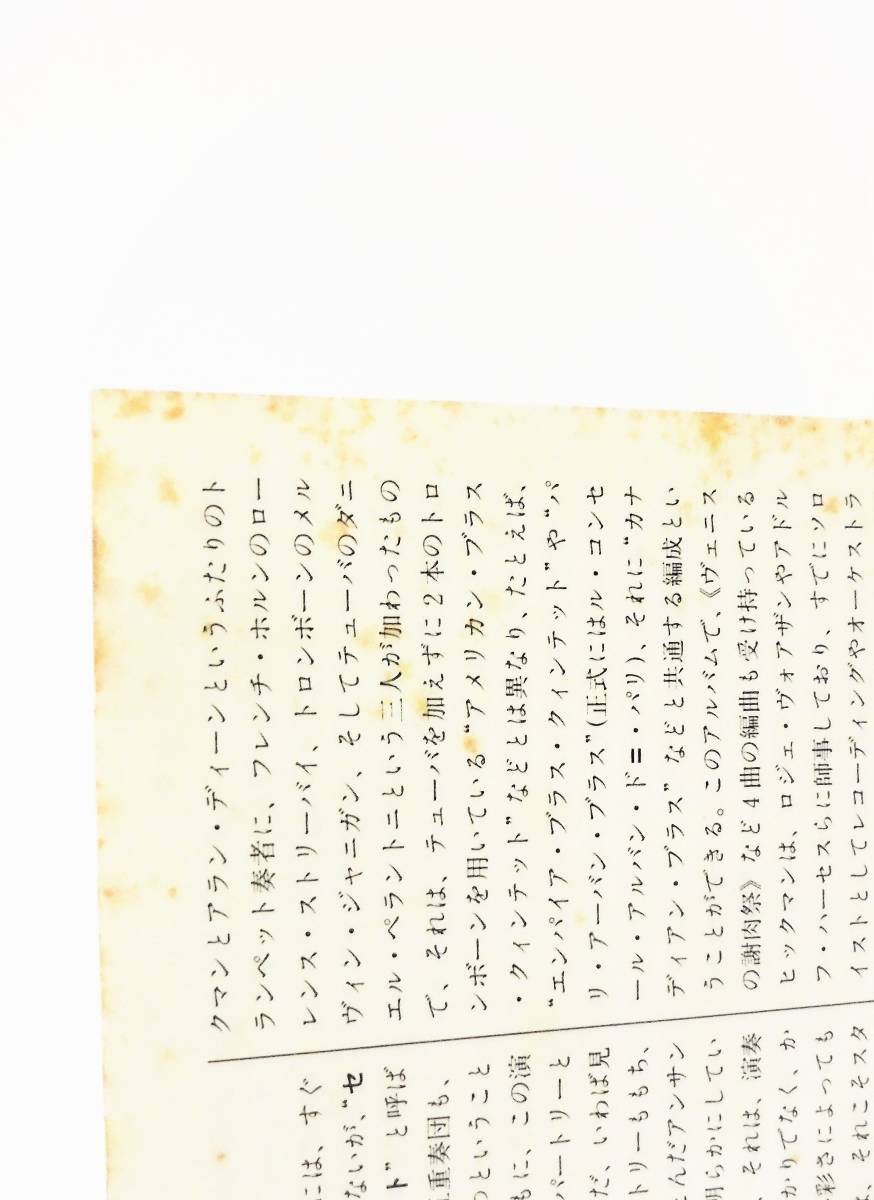 クマンとアラン・ディーンというふたりのト
ランペット奏者に、フレンチ・ホルンのロー
レンス・ストリーバイ、トロンボーンのメル
ヴィン・ジャニガン、そしてテューバのダニ
エル・ペラントニという三人が加わったもの
で、それは、テューバを加えずに2本のトロ
ンボーンを用いている“アメリカン・ブラス
・クィンテッド”などとは異なり、たとえば、
“エンパイア・ブラス・クィンテッド”や“パ
リ・アーバン・ブラス”(正式にはル・コンセ
ール・アルバン・ド=・パリ)、それに“カナ
ディアン・ブラス”などと共通する編成とい
うことができる。このアルバムで、《ヴェニス
の謝肉祭》など4曲の編曲も受け持っている
ヒックマンは、ロジェ・ヴォアザンやアドル
フ・ハーセスらに師事しており、すでにソロ
イストとしてレコーディングやオーケストラ
には、すぐ
ないが、“セ
ド”と呼ば
重奏団も、
っということ
もに、この演
パートリーと
だ、いわば見
トリーももち、
んだアンサン
明らかにしてい
、それは、演奏
かりでなく、か
彩さによっても
、それこそスタ